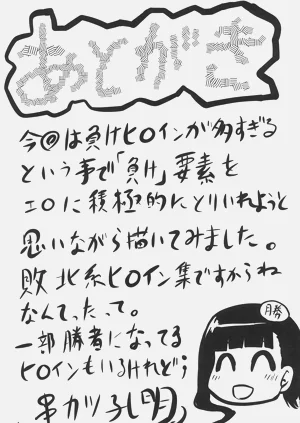 あとがき
今回は負けヒロインが多すぎる
という事で「負け」要素を
エロに積極的にとりいれようと
思いながら描いてみました。
敗北系ヒロイン集ですからね
なんてったって。
一部勝者になってる
ヒロインもいるけれど;
串カツ孔明
勝